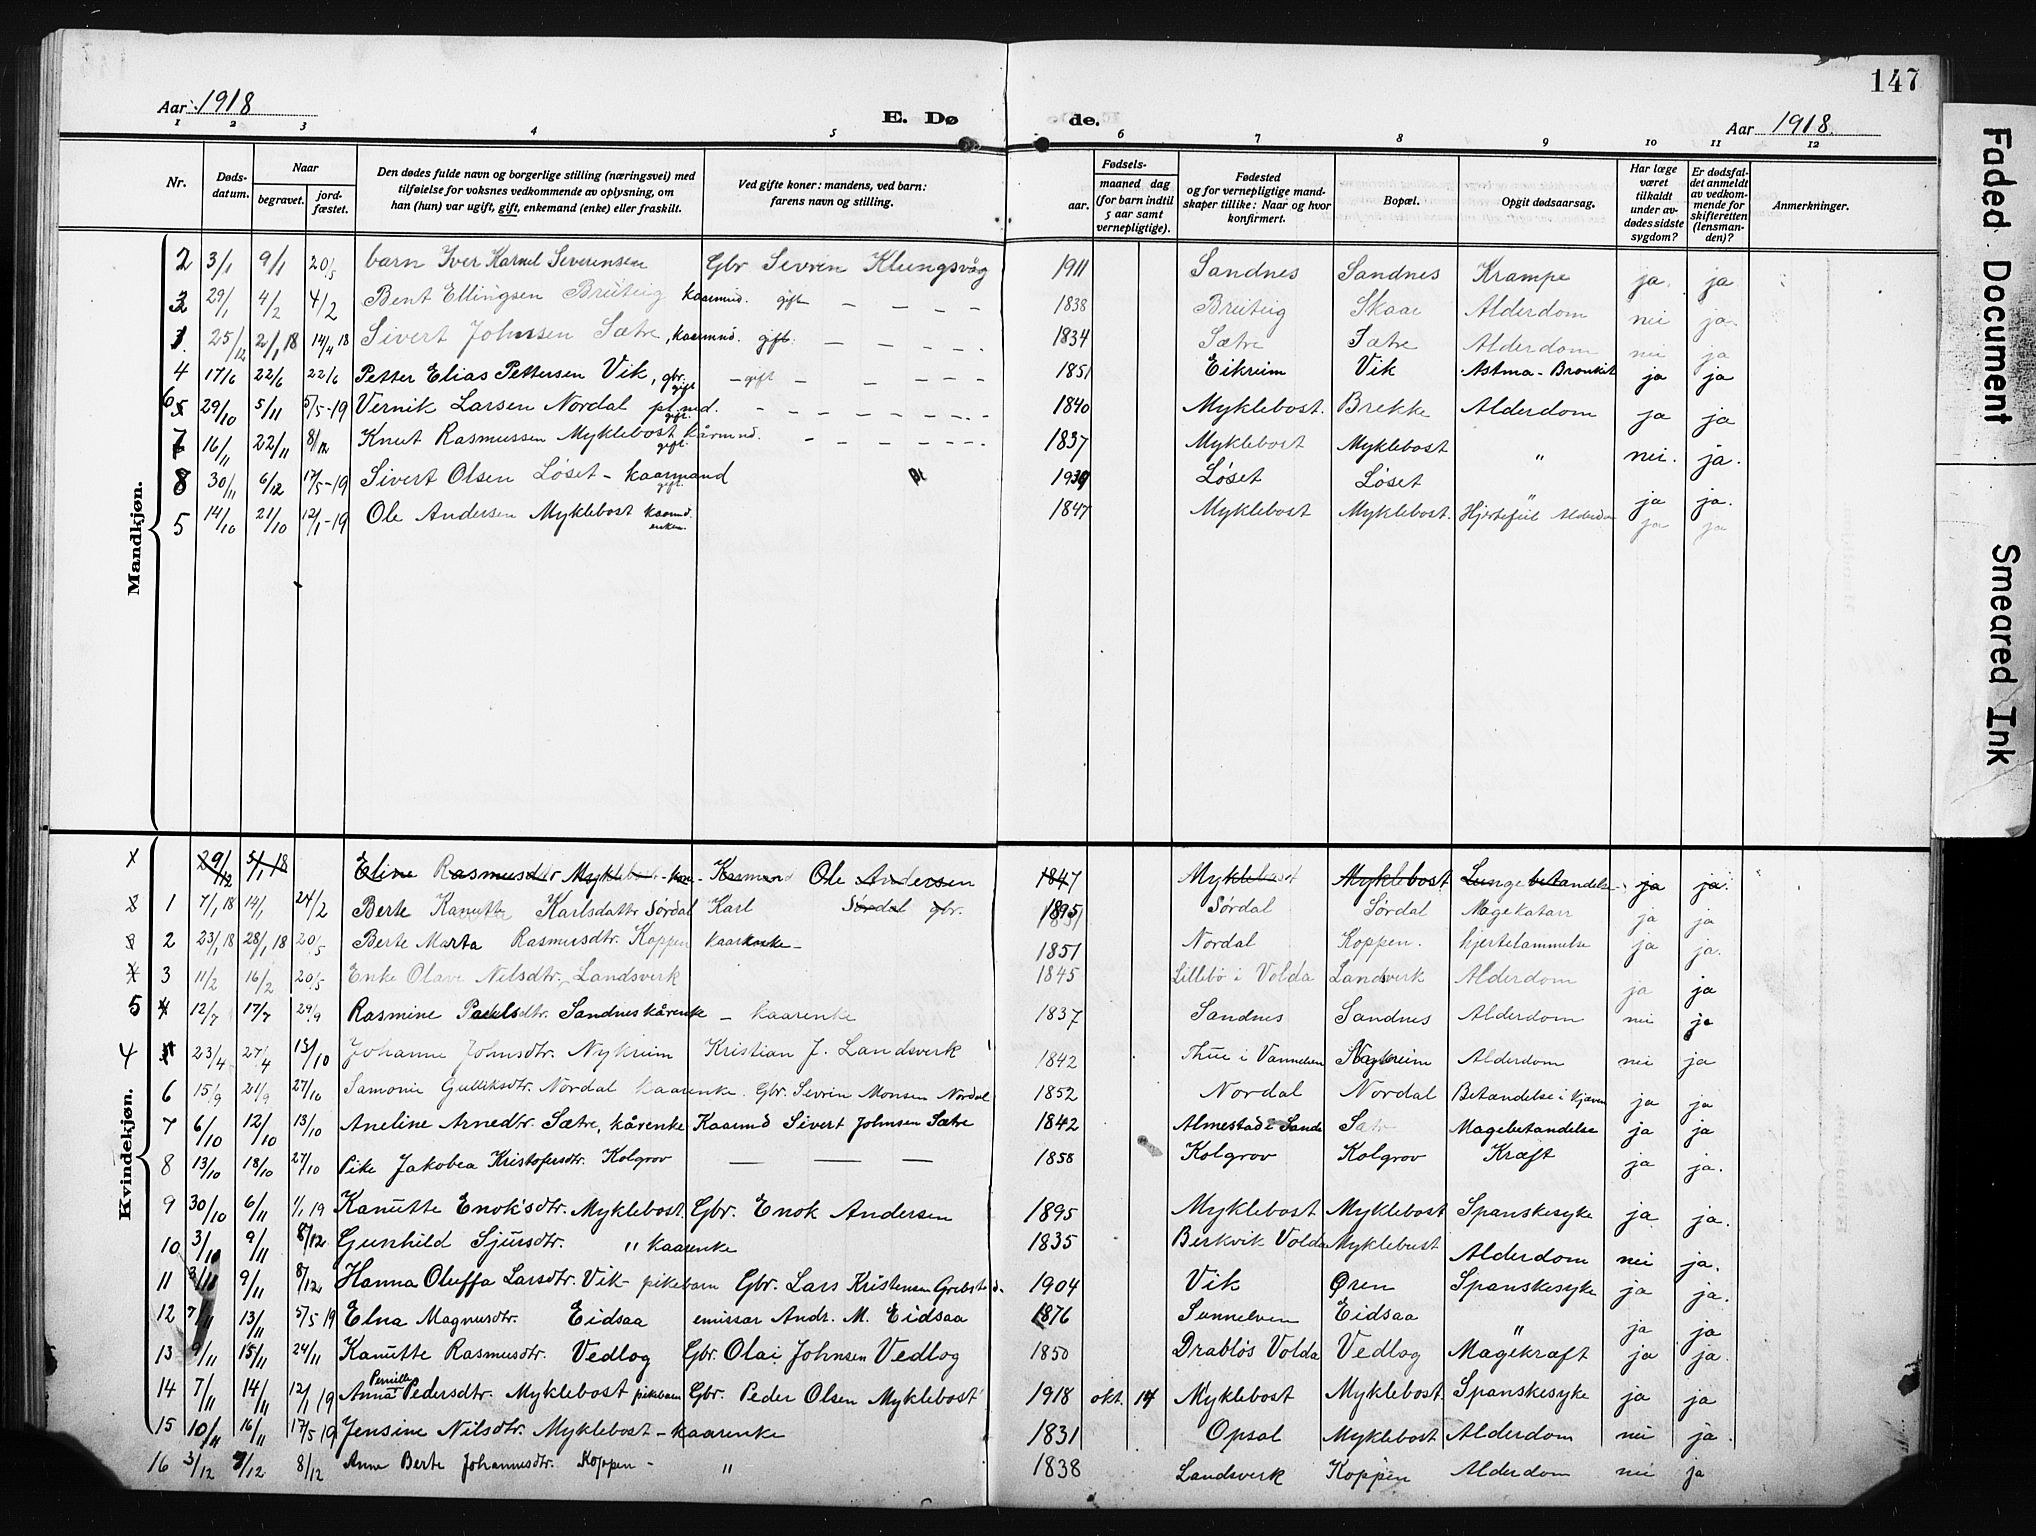 147
Aar 1918 E. Døde. Aar 1918.
1 2 3 4 5 6 7 8 9 10 11 12
Nr. Døds-datum. Naar begravet. jord-fæstet. Den dødes fulde navn og borgerlige stilling (næringsvei) med tilføielse for voksnes vedkommende av oplysning, om han (hun) var ugift, gift, enkemand (enke) eller fraskilt. Ved gifte koner: mandens, ved barn: farens navn og stilling. Fødsels- aar. maaned dag (for barn indtil 5 aar samt vernepligtige). Fødested og for vernepligtige mand-skaper tillike: Naar og hvor konfirmert. Bopæl. Opgit dødsaarsag. Har læge været tilkaldt under av-dødes sidste sygdom? Er dødsfal-det anmeldt av vedkom-mende for skifteretten (lensman-den)? Anmerkninger.
Mandkjøn.
2 3/1 9/1 20/5 barn Iver Karnel Severensen Gbr Sevrin Klungsvåg 1911 Sandnes Sandnes Krampe ja. ja
3 29/1 4/2 4/2 Bent Ellingsen Brüteig kaarmnd. gift 1838 Brüteig Skaar Alderdom nei ja
1. 25/12 2/1 18 14/4 18 Sivert Johnsen Sætre, kaarmnd. gift. 1834 Sætre Sætre Alderdom nei ja
4 17/6 22/6 22/6 Petter Elias Pettersen Vik, gbr. gift - gift - 1851 Eikreim Vik Astma - Bronkit ja ja
6 29/10 5/11 5/5-19 Vernik Larsen Nordal pl.md. gift. 1840 Myklebost. Brekke Alderdom ja ja
7 16/11 22/11 8/12 Knut Rasmussen Myklebost kårmnd. gift. 1837 Myklebost Myklebost " nei. ja.
8 30/11 6/12 17/5-19 Sivert Olsen Løset - kaarmand gift. Løset Løset " ja ja.
5 14/10 21/10 12/1-19 Ole Andersen Myklebost kaarmd. enkem. 1847 Myklebost Myklebost. Hjertefeil Alderdom ja ja
Kvindekjøn.
29/12 5/1 18 Eline Rasmusdtr Myklebost - Kaarmand Ole Andersen 1847 Myklebost Myklebost Lungebetændelse ja ja.
1 7/1 18 14/1 24/2 Berte Kanutte Karlsdattr Sørdal Karl Sørdal gbr. 1895 Sørdal Sørdal Magekatarr ja ja
2 23/1 18 28/1 18 20/5 Berte Marta Rasmusdtr. Koppen kaarenke - 1851 Nordal Koppen. hjertelammelse ja ja.
3 11/2 16/2 20/5 Enke Olave Nilsdtr. Landsverk 1845 Lillebö i Volda Landsverk Alderdom ja ja
5 12/7 17/7 29/9 Rasmine Paulsdtr. Sandnes kårenke - kaarenke 1837 Sandnes Sandnes Alderdom nei ja
4 23/4 27/4 13/10 Johanne Johnsdtr. Nykreim Kristian J. Landsverk 1842 Thue i Vannelven Nykreim Alderdom nei ja
6 15/9 21/9 27/10 Samonie Gulliksdtr. Nordal kaarenke. Gbr. Sevrin Monsen Nordal 1852 Nordal Nordal Betændelse i Kjæven ja ja
7 6/10 12/10 13/10 Aneline Arnedtr. Sætre, kårenke Kaarmd Sivert Johnsen Sætre 1842 Almestad i Sande Sætr Magebetændelse ja ja
8 13/10 18/10 27/10 Pike Jakobea Kristofersdtr. Kolgrov — — — 1858 Kolgrov Kolgrov Kræft ja ja.
9 30/10 6/11 1/1 19 Kanutte Enok'sdtr. Myklebost. Gbr. Enok Andersen 1895 Myklebost Myklebost Spanskesyke ja ja.
10 3/10 9/11 8/12 Gunhild Sjursdtr. " kaarenke 1835 Berkvik Volda Myklebust Alderdom nei ja.
11 3/11 9/11 8/12 Hanna Oluffa Larsdtr. Vik - pikebarn Gbr. Lars Kristensen Grebsted. 1904 Vik Øren Spanskesyke ja ja.
12 7/11 13/11 5/5 19 Elna Magnusdtr. Eidsaa emissær Andr. M. Eidsaa 1876 Sunnelven Eidsaa " ja ja
13 9/11 15/11 24/11 Kanutte Rasmusdtr. Vedlog Gbr. Olai Johnsen Vedlog 1850 Drabløs Volda Vedlog Magekræft ja ja.
14 7/11 14/11 12/1 19 Anna Pernille Pedersdtr. Myklebost pikebarn Gbr. Peder Olsen Myklebost 1918 okt. 14 Myklebost Myklebost. Spanskesyke ja ja
15 10/11 16/11 17/5 19 Jensine Nilsdtr. Myklebost - kaarenke 1831 Opsal Myklebost Alderdom nei ja.
16 3/12 9/12 8/12 Anne Berte Johannusdtr. Koppen - " 1838 Landsverk Koppen Alderdom nei ja
Faded Document
Smeared Ink